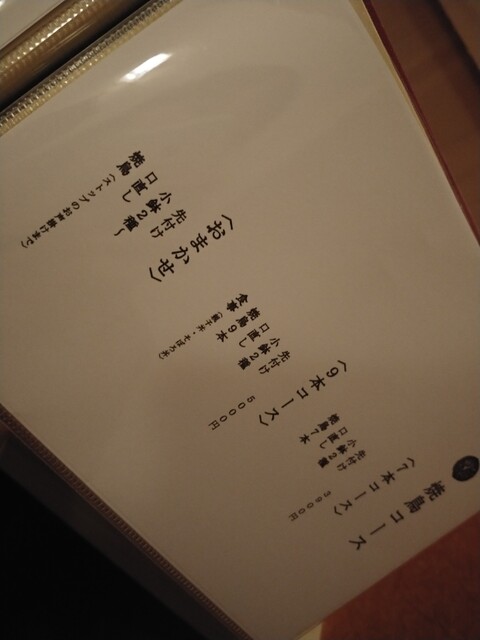 焼鳥コース
〈7本コース〉
先付け
小鉢2種
口直し
焼鳥7本
3900円
〈9本コース〉
先付け
小鉢2種
口直し
焼鳥9本
食事（親子丼・そぼろ丼）
5000円
〈おまかせ〉
先付け
小鉢2種〜
口直し
焼鳥（ストップのお声掛けまで）